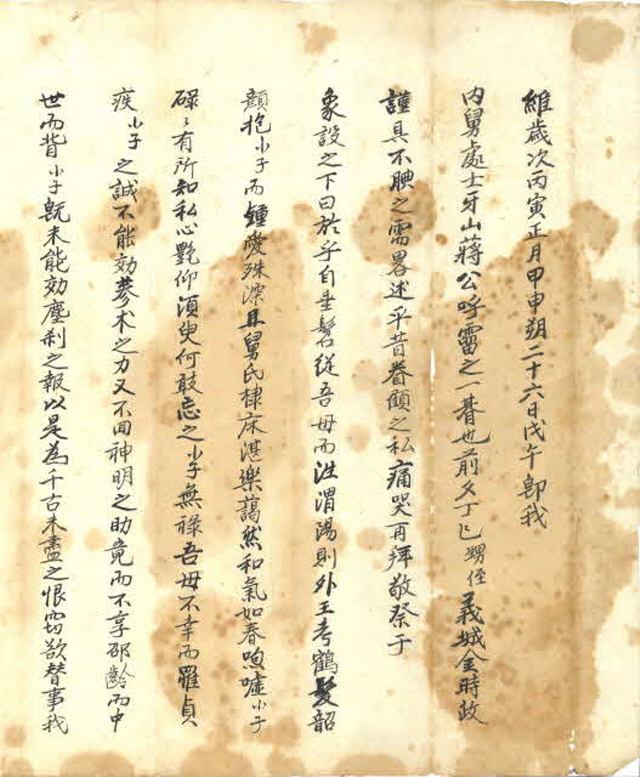 維歲次丙寅正月甲申朔二十六日戊午卽我
內舅處士牙山蔣公呼雷之一朞也前夕丁巳甥侄義城金時政
謹具不腆之需畧述平昔眷顧之私痛哭再拜敬祭于
象設之下曰於乎自垂髫從吾母而泩渭陽則外王考鶴髮韶
顏抱小子而鍾愛殊深且舅氏棣床湛樂藹然和氣如春呴噓小子
碌々有所知私心艶仰須臾何敢忘之小子無祿吾母不幸而罹貞
疾小子之誠不能効蔘朮之力又不回神明之助竟而不享卲齡而中
世而背小子旣未能効塵刹之報以是為千古未盡之恨窃欲替事我